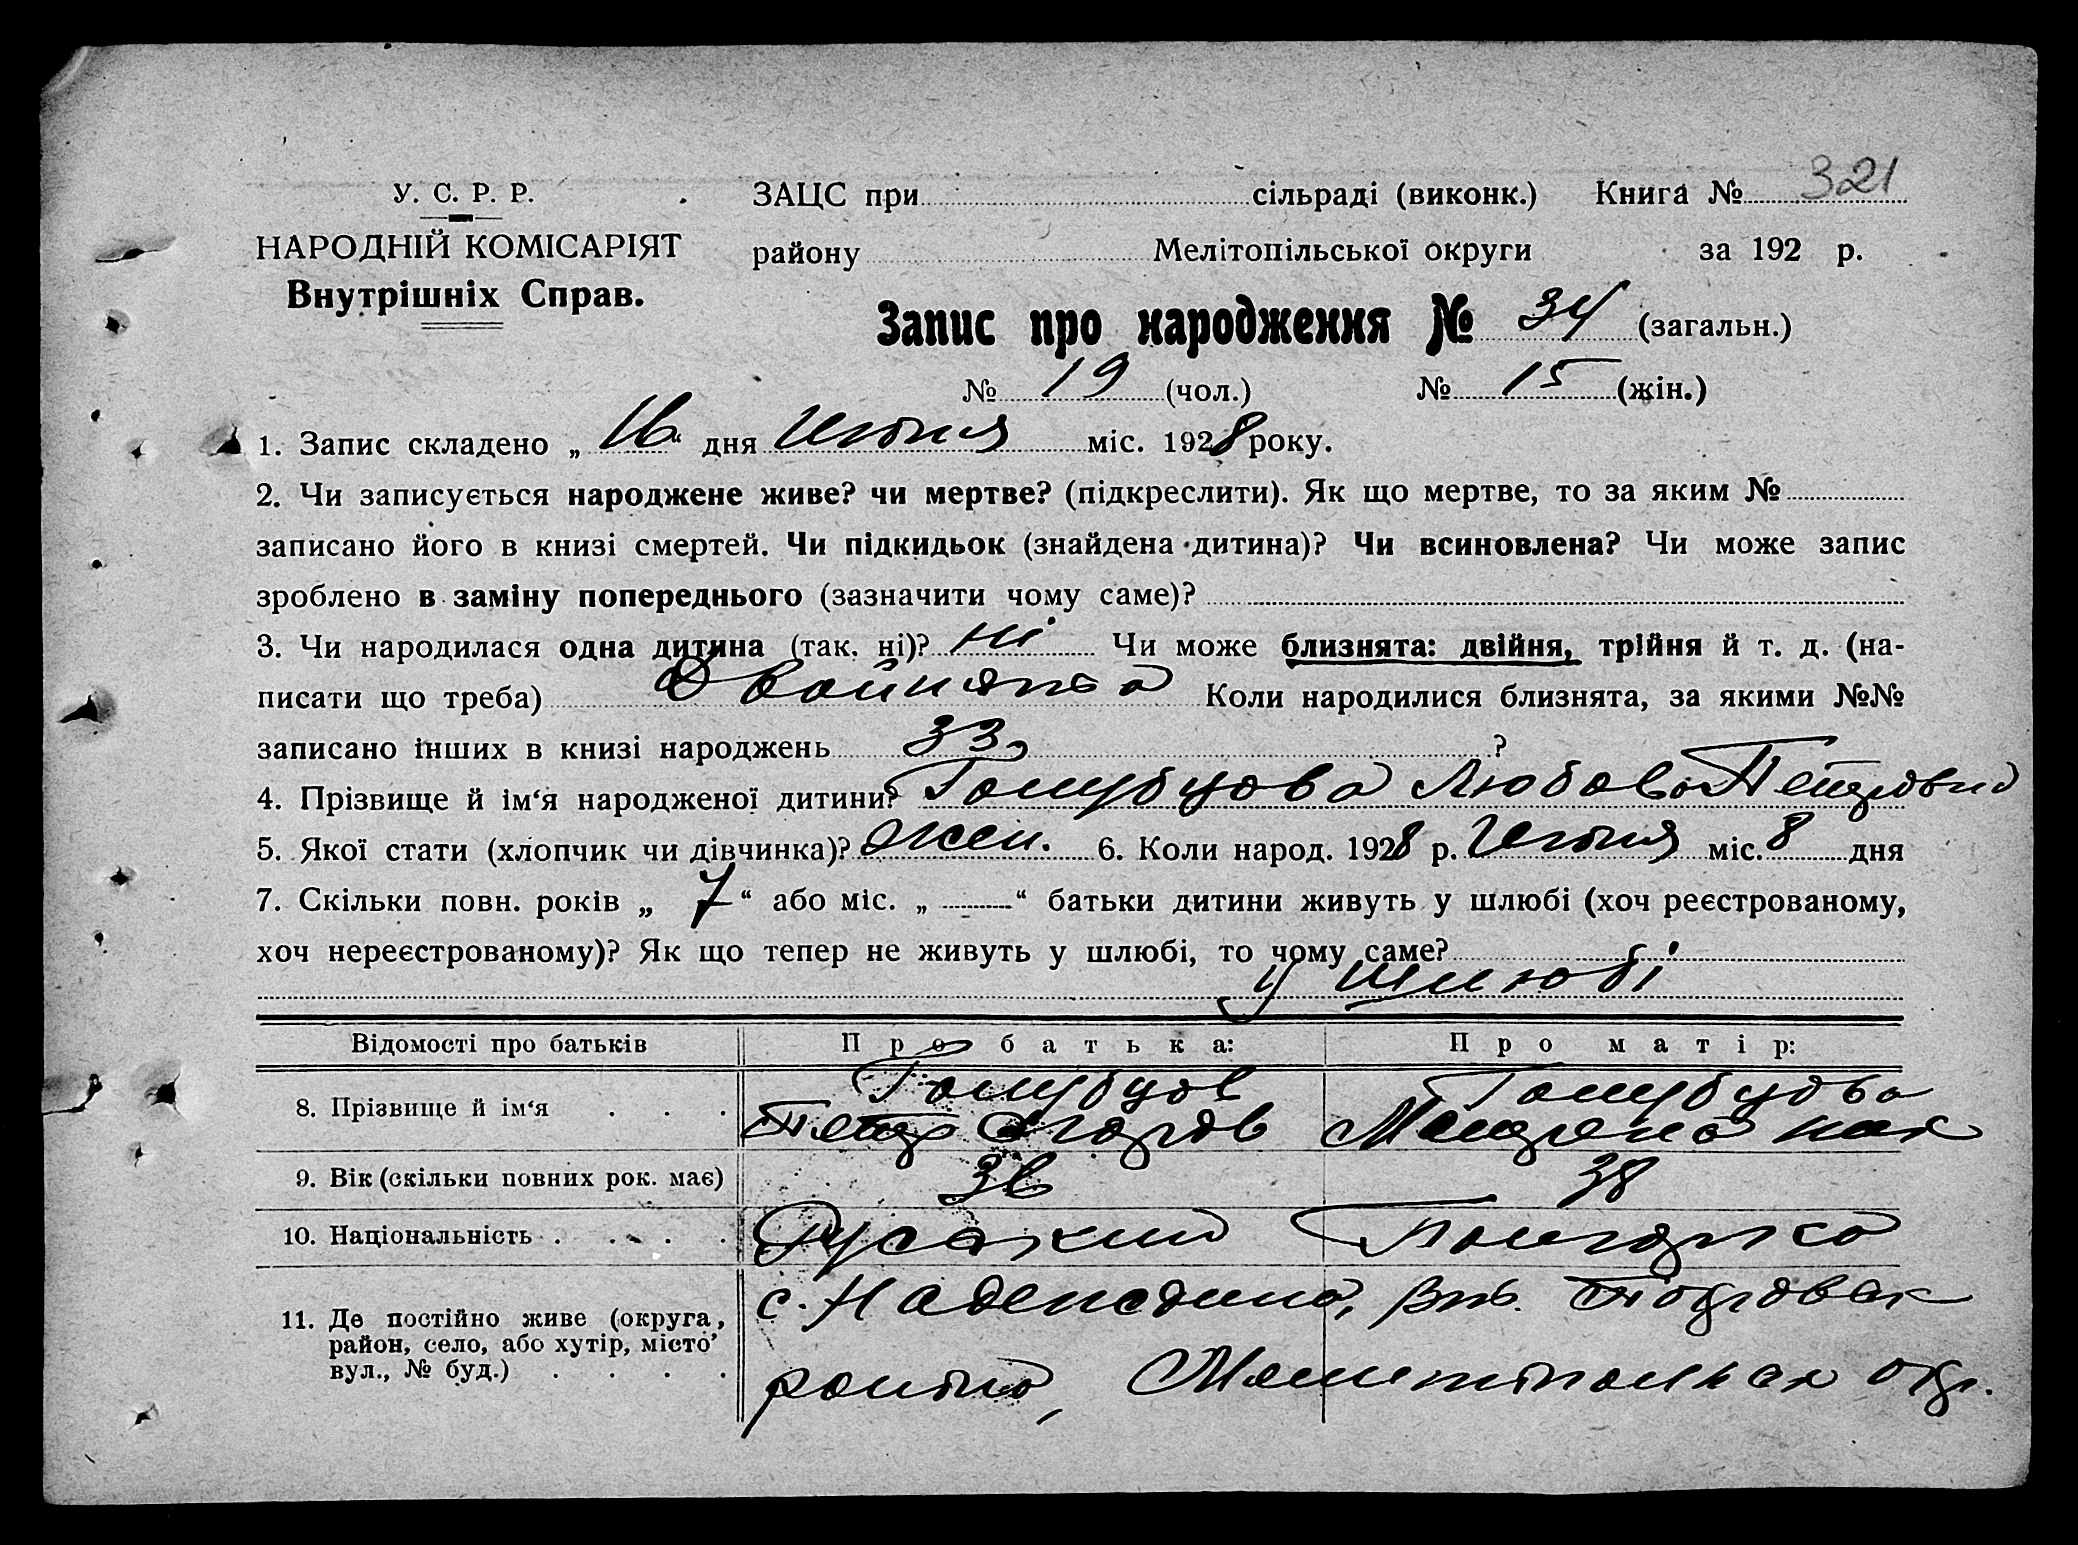 У. С. Р. Р.
НАРОДНІЙ КОМІСАРІЯТ
Внутрішніх Справ.
ЗАЦС при сільраді (виконк.) Книга № 321
району Мелітопільської округи за 192 р.
Запис про народження № 34 (загальн.)
№ 19 (чол.) № 15 (жін.)
1. Запис складено „ 16 “ дня Июня міс. 1928 року.
2. Чи записується народжене живе? чи мертве? (підкреслити). Як що мертве, то за яким №
записано його в книзі смертей. Чи підкидьок (знайдена дитина)? Чи всиновлена? Чи може запис
зроблено в заміну попереднього (зазначити чому саме)?
3. Чи народилася одна дитина (так, ні)? ні Чи може близнята: двійня, трійня й т. д. (на-
писати що треба) Двойнята Коли народилися близнята, за якими №№
записано інших в книзі народжень 33 ?
4. Прізвище й ім‘я народженої дитини? Голубцова Любовь Петровна
5. Якої стати (хлопчик чи дівчинка)? Жен. 6. Коли народ. 1928 р. Июня міс. 8 дня
7. Скільки повн. років „ 7 “ або міс. „ — “ батьки дитини живуть у шлюбі (хоч реєстрованому,
хоч нереєстрованому)? Як що тепер не живуть у шлюбі, то чому саме?
у шлюбі
Відомості про батьків Про батька: Про матір:
8. Прізвище й ім‘я . . . Голубцов Голубцова
Петр Мотрона
9. Вік (скільки повних рок. має) 36 38
10. Національність . . . . Руський Болгарка
11. Де постійно живе (округа,
район, село, або хутір, місто
вул., № буд.) . . . .
с. Надеждино,
району, Мелитопольск окр.